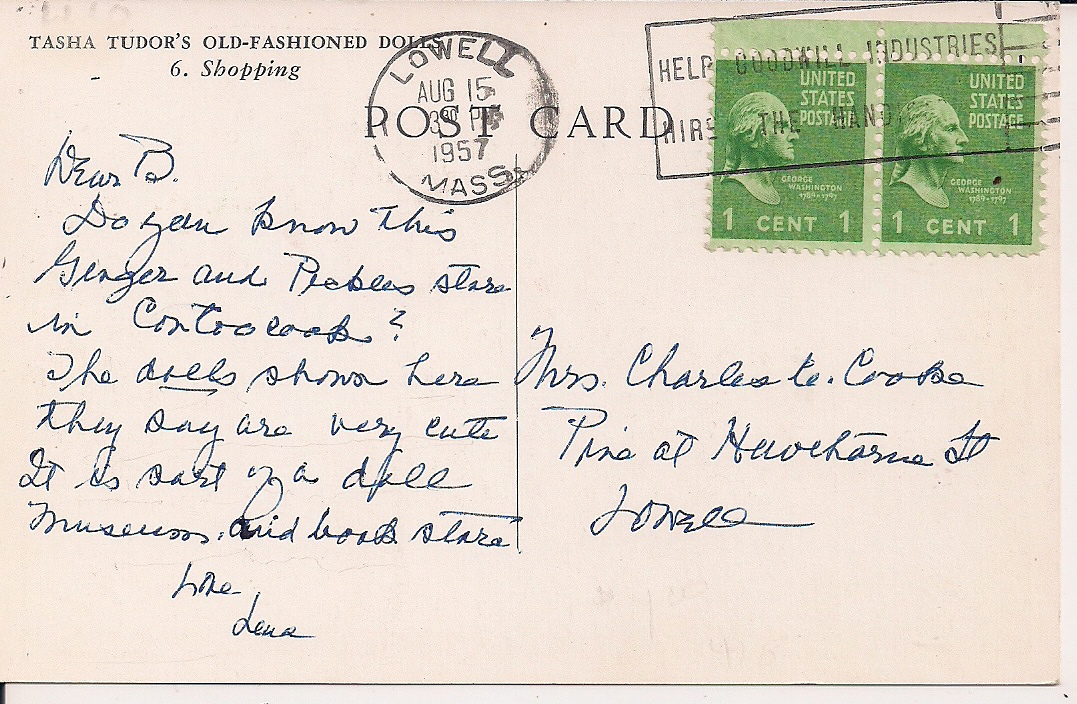 TASHA TUDOR'S OLD-FASHIONED DOLLS
6. Shopping
POST CARD
LOWELL
AUG 15
3 PM
1957
MASS.
HELP GOODWILL INDUSTRIES
HIRE THE HAND
UNITED
STATES
POSTAGE
GEORGE
WASHINGTON
1789-1797
1 CENT 1
UNITED
STATES
POSTAGE
GEORGE
WASHINGTON
1789-1797
1 CENT 1
Dear B.
Do you know this
Ginger and Pickles store
in Contoocook?
The dolls shown here
they say are very cute
It is sort of a doll
museum and book store
Love
Lena
Mrs. Charles Cooke
Pine at Hawthorne St
Lowell